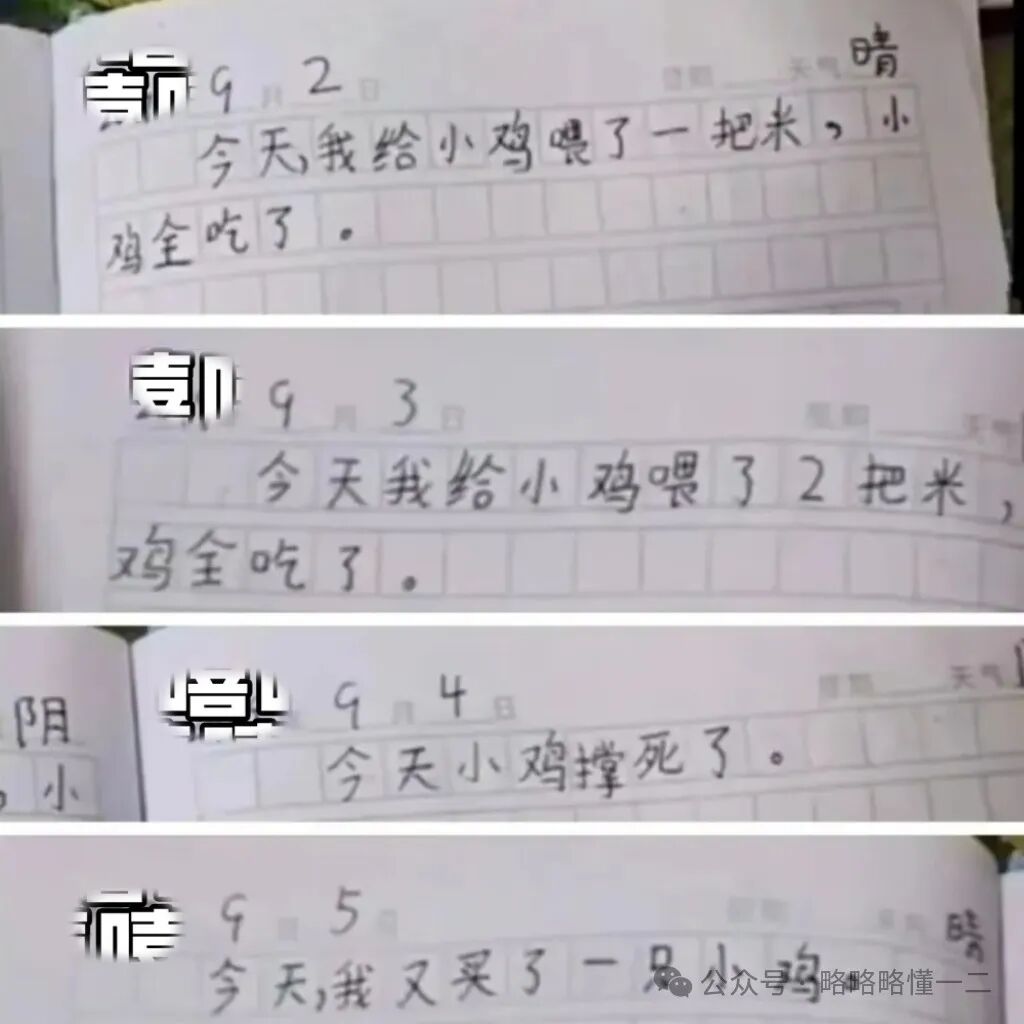 9月2日 星期 天气 晴
今天,我给小鸡喂了一把米,小
鸡全吃了。
9月3日 星期 天气
今天我给小鸡喂了2把米,
鸡全吃了。
阴
,小
9月4日 星期 天气
今天小鸡撑死了。
9月5日 星期 天气 晴
今天,我又买了一只小鸡。
公众号 略略略懂一二